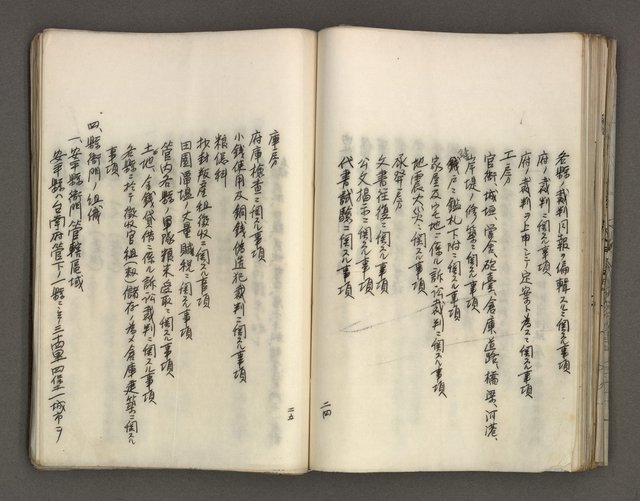 各縣ノ裁判月報ヲ編輯スルニ関スル事項
府ノ裁判ニ関スル事項
府ノ裁判ヲ上申シテ定案ト為スニ関スル事項
工房
官衙、城垣、学舍、砲台、倉庫、道路、橋梁、河港、
岸堤ノ修築ニ関スル事項
銭戸ニ鑑札下附ニ関スル事項
家屋及ヒ宅地ニ係ル訴訟裁判ニ関スル事項
地震大災ニ関スル事項
承発房
文書往復ニ関スル事項
公文掲示ニ関スル事項
代書試験ニ関スル事項
二四
庫房
府庫検査ニ関スル事項
小銭使用及銅銭偽造犯裁判ニ関スル事項
糧儲科
抄封叛産租徴収ニ関スル事項
田園潭塭ノ丈量賦税ニ関スル事項
管内各縣ノ軍隊糧米受取ニ関スル事項
土地、金銭貸借ニ係ル訴訟裁判ニ関スル事項
各縣ニ於テ徴收官租穀ノ儲存ノ為メ倉庫建築ニ関スル
事項
四、縣衙門ノ組織
一、安平縣衙門管轄區域
安平縣ハ台南府管下ノ一縣ニシテ三十四里四堡一城市ヲ
二五